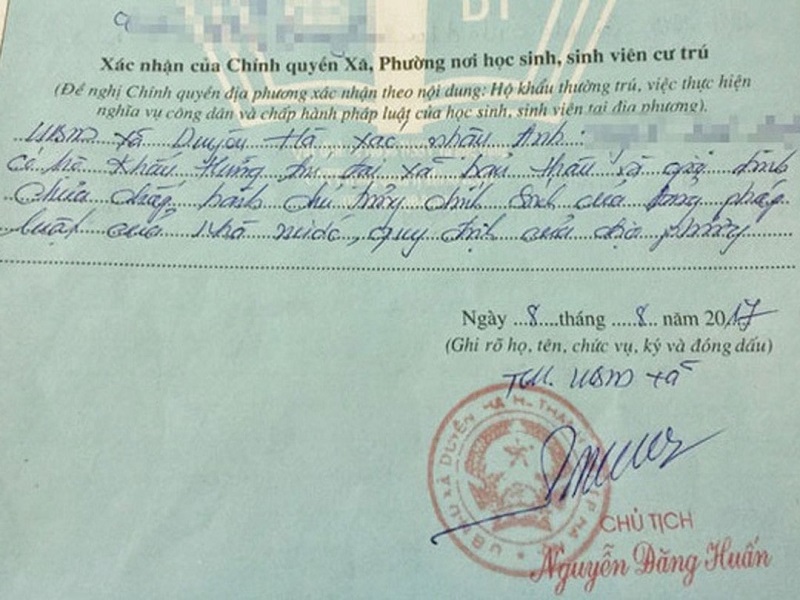 BT
Xác nhận của Chính quyền Xã, Phường nơi học sinh, sinh viên cư trú
(Đề nghị Chính quyền địa phương xác nhận theo nội dung: Hộ khẩu thường trú, việc thực hiện
nghĩa vụ công dân và chấp hành pháp luật của học sinh, sinh viên tại địa phương).
UBND xã Duyên Hà xác nhận Anh:
có hộ khẩu thường trú tại xã bản thân và gia đình
Chưa chấp hành chủ trương chính sách của pháp
luật của Nhà nước, quy định của địa phương
Ngày 8 tháng 8 năm 2017
(Ghi rõ họ, tên, chức vụ, ký và đóng dấu)
TM. UBND xã
U.B.N.D XÃ DUYÊN HÀ H. THANH TP HÀ
CHỦ TỊCH
Nguyễn Đăng Huấn